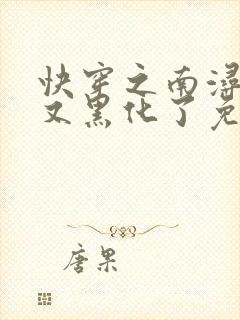 快穿之南浔
又黑化了免
唐果